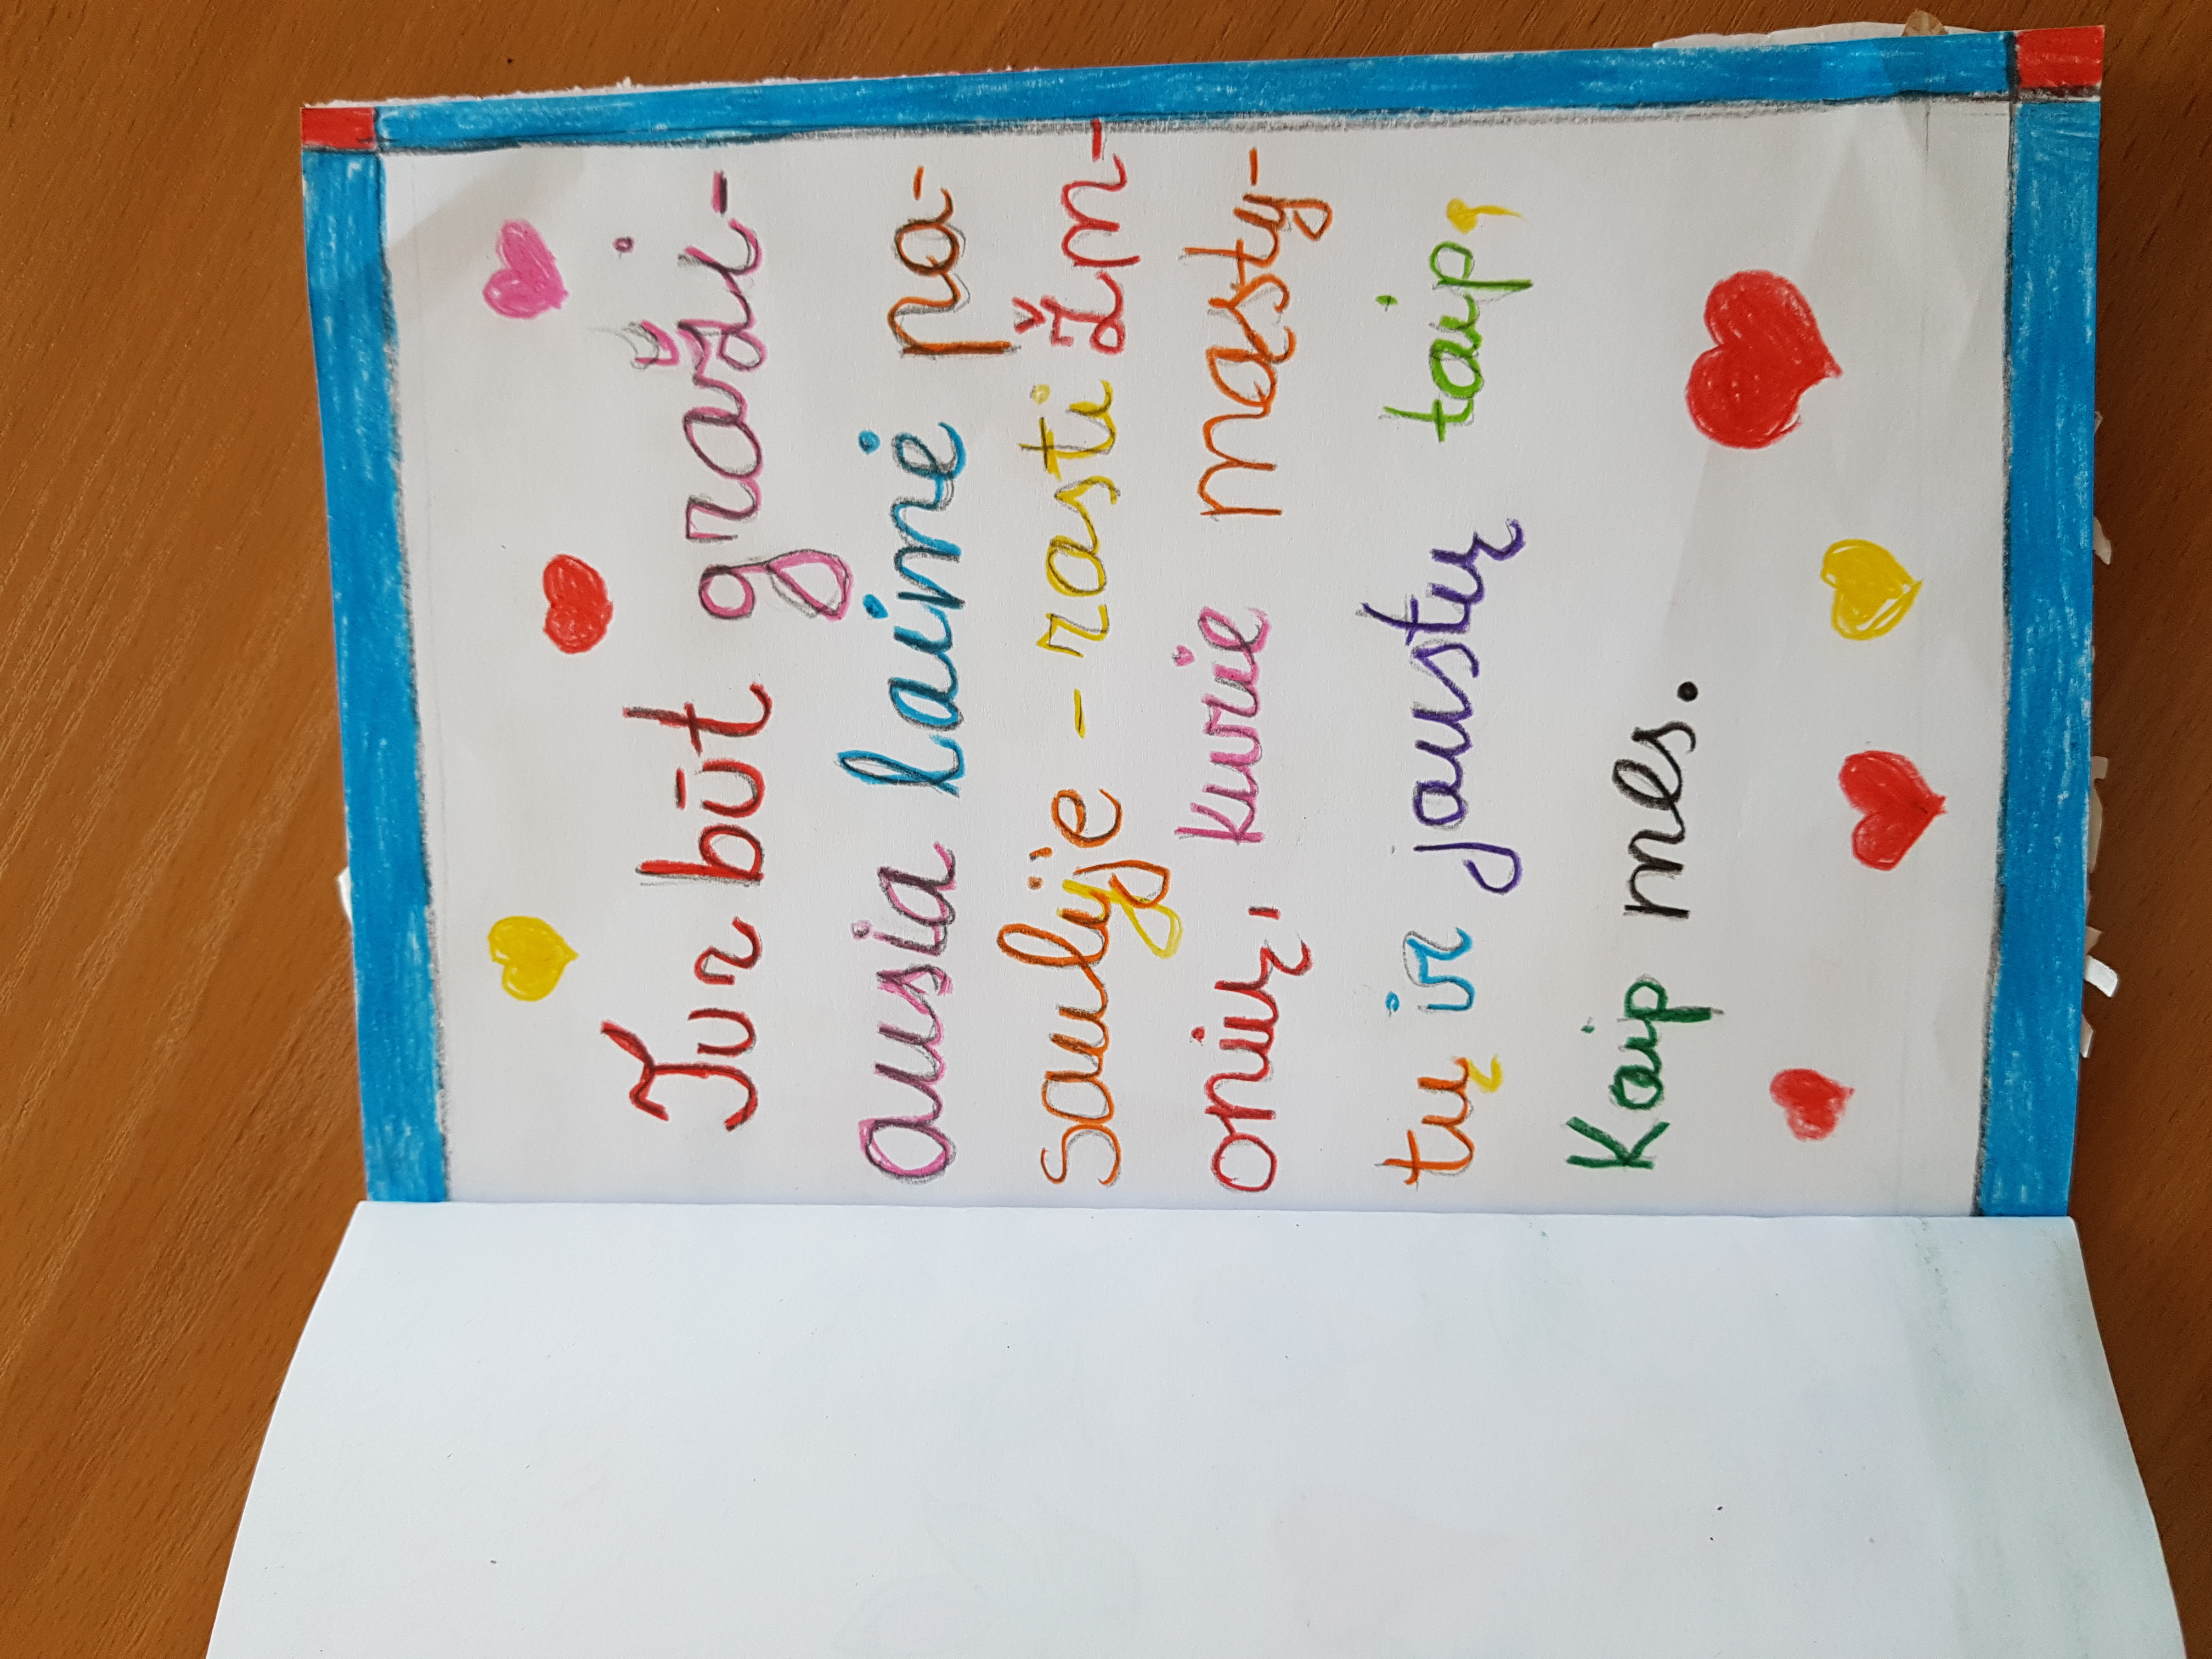 Tur būt graži-
ausia laimė pa-
saulyje - rasti žm-
onių, kurie mąsty-
tų ir jaustų taip,
Kaip mes.